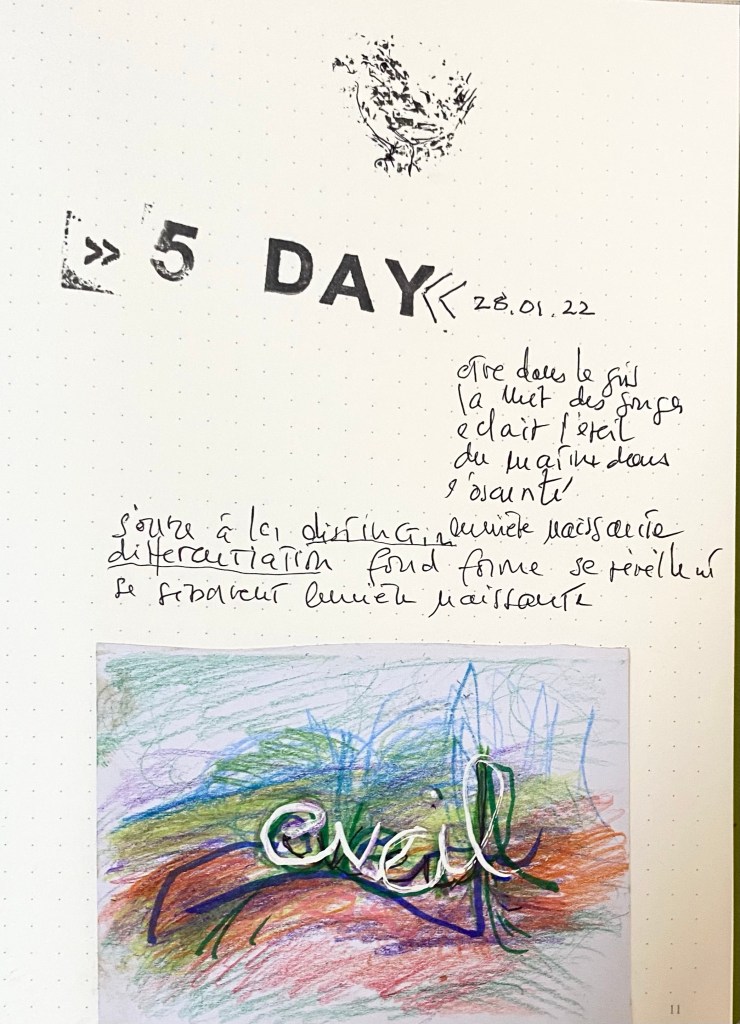 » 5 DAY « 28.01.22
etre dans le gris
la nuit des songes
eclair l'éveil
du matin dans
s'ouvre à la distinction lumière naissante
differentiation fond forme se réveillent
se séparent lumière naissante
eveil
11